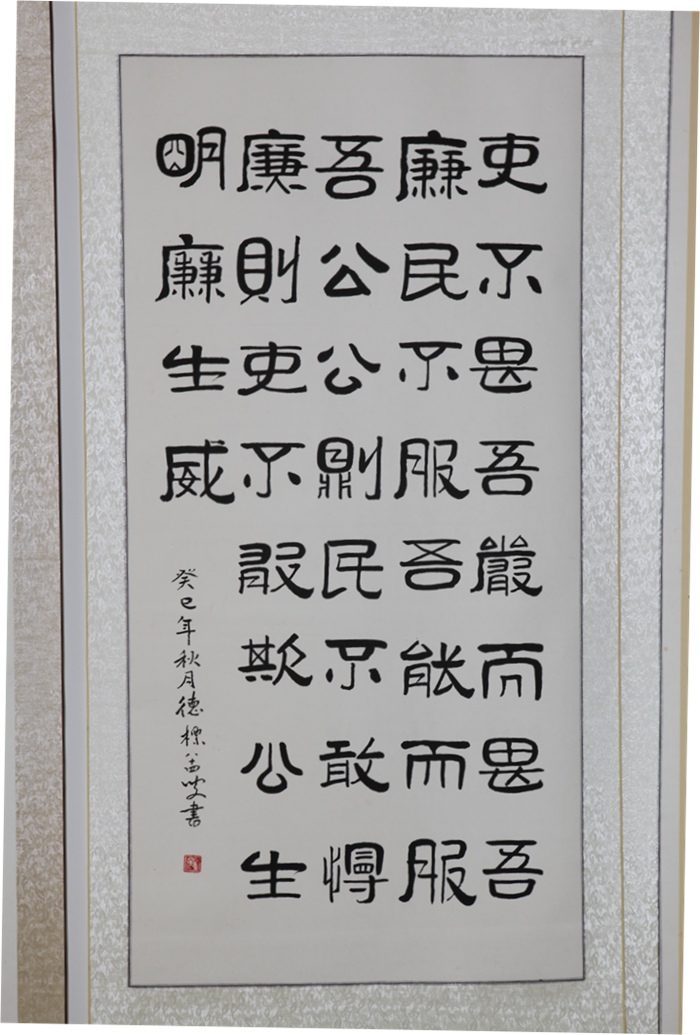 吏不畏吾嚴而畏吾
廉民不服吾能而服
吾公公則民不敢慢
廉則吏不敢欺公生
明廉生威
癸巳年秋月德標八十叟書